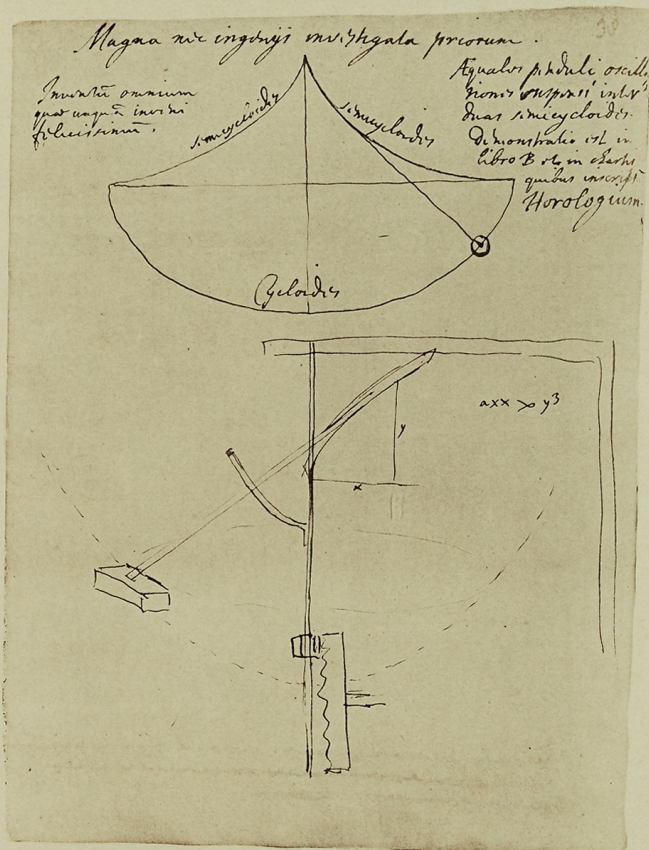 38
Magna nec ingenijs investigata priorum.
Inventum omnium
quae unquam inveni
felicissimum.
semicycloides
semicycloides
Aequales penduli oscilla
tiones suspensi inter
duas semicycloides.
Demonstratio est in
libro B et in chartis
quibus inscript
Horologium.
Cycloides
axx ꝏ y3
y
x